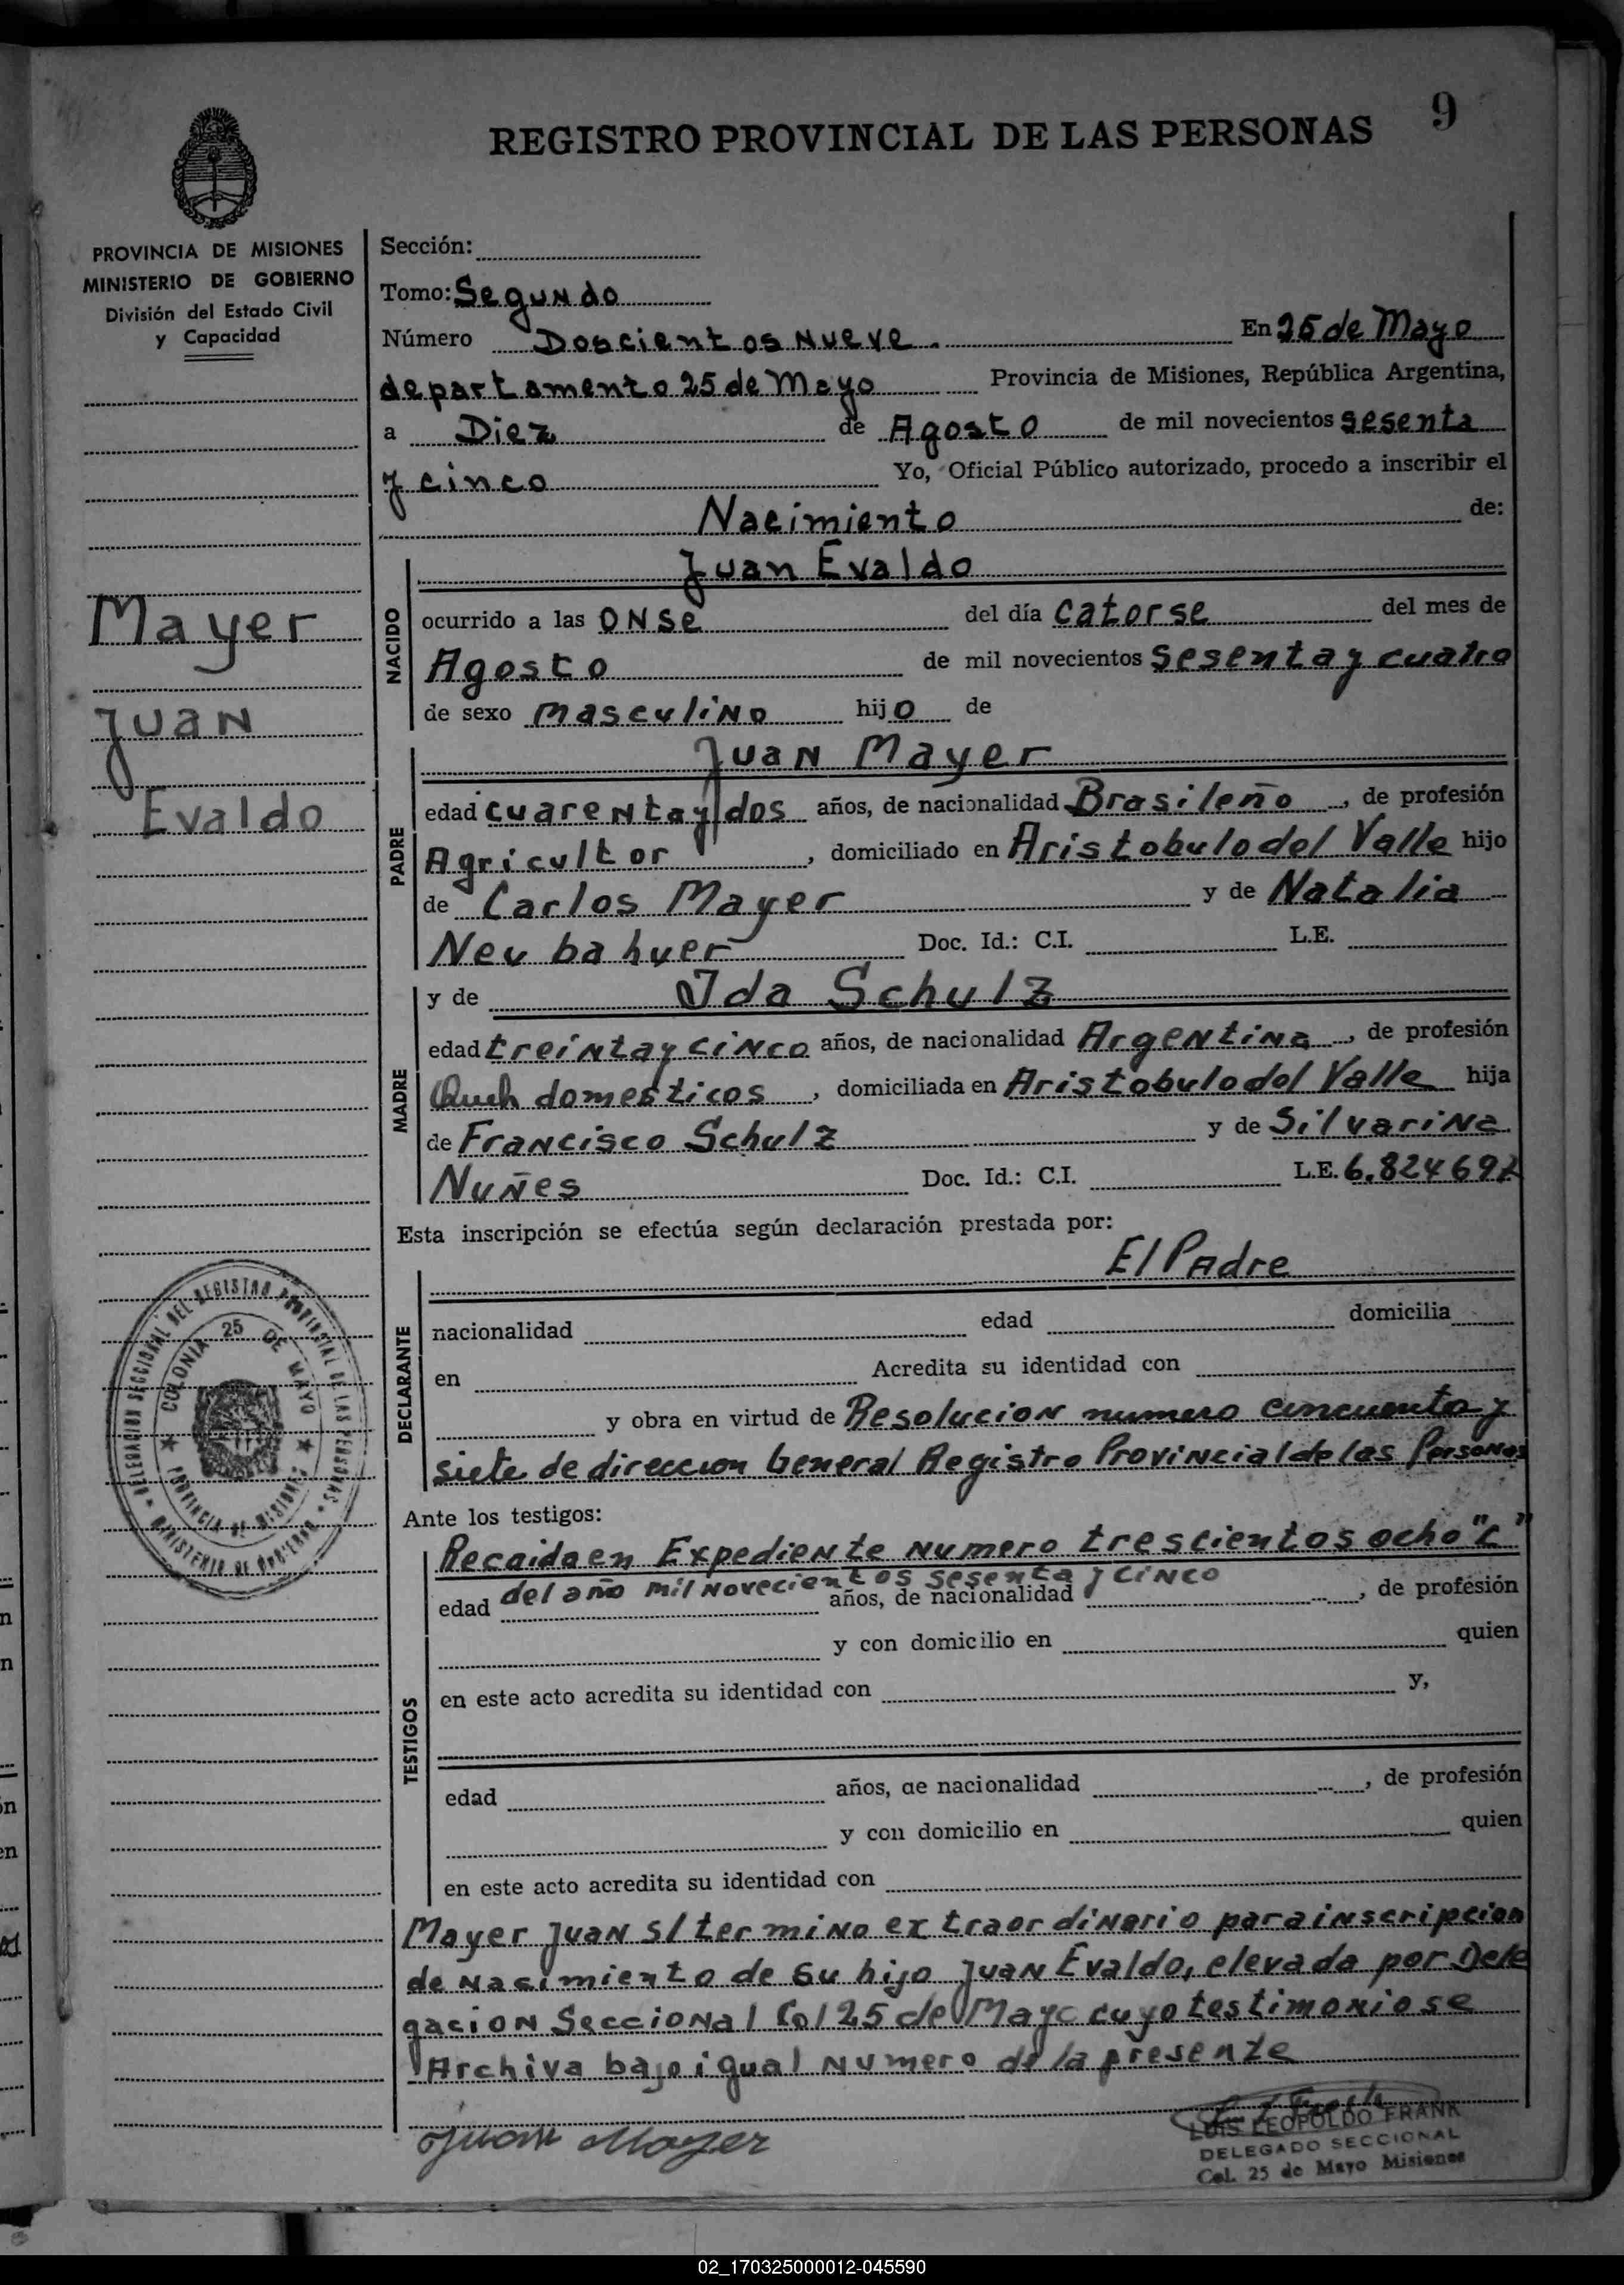 9
REGISTRO PROVINCIAL DE LAS PERSONAS
PROVINCIA DE MISIONES
MINISTERIO DE GOBIERNO
División del Estado Civil
y Capacidad
Mayer
Juan
Evaldo
Sección:
Tomo: Segundo
Número Doscientos Nueve. En 25 de Mayo
departamento 25 de Mayo Provincia de Misiones, República Argentina,
a Diez de Agosto de mil novecientos sesenta
y cinco Yo, Oficial Público autorizado, procedo a inscribir el
Nacimiento de:
Juan Evaldo
NACIDO
ocurrido a las ONSe del día catorse del mes de
Agosto de mil novecientos sesenta y cuatro
de sexo masculino hijo de
Juan Mayer
PADRE
edad cuarenta y dos años, de nacionalidad Brasileño, de profesión
Agricultor, domiciliado en Aristobulo del Valle hijo
de Carlos Mayer y de Natalia
Neubahuer Doc. Id.: C.I. L.E.
y de Ida Schulz
MADRE
edad treinta y cinco años, de nacionalidad Argentina, de profesión
Queh domesticos, domiciliada en Aristobulo del Valle hija
de Francisco Schulz y de Silvarina
Nuñes Doc. Id.: C.I. L.E. 6.824692
Esta inscripción se efectúa según declaración prestada por:
El Padre
DECLARANTE
nacionalidad edad domicilia
en Acredita su identidad con
y obra en virtud de Resolucion numero cincuenta y
siete de direccion General Registro Provincial de las Personas
Ante los testigos:
Recaida en Expediente Numero trescientos ocho "L"
del año mil Novecientos sesenta y cinco
edad años, de nacionalidad , de profesión
y con domicilio en quien
en este acto acredita su identidad con y,
TESTIGOS
edad años, de nacionalidad , de profesión
y con domicilio en quien
en este acto acredita su identidad con
Mayer Juan s/ termino extraordinario para inscripcion
de Nasimiento de su hijo Juan Evaldo, elevada por Dele
gacion Seccional Col 25 de Mayo cuyo testimonio se
Archiva bajo igual Numero de la presente
Juan Mayer
LUIS LEOPOLDO FRANK
DELEGADO SECCIONAL
Col. 25 de Mayo Misiones
DELEGACION SECCIONAL DEL REGISTRO PROVINCIAL DE LAS PERSONAS
MINISTERIO DE GOBIERNO
COLONIA 25 DE MAYO
PROVINCIA DE MISIONES
02_170325000012-045590